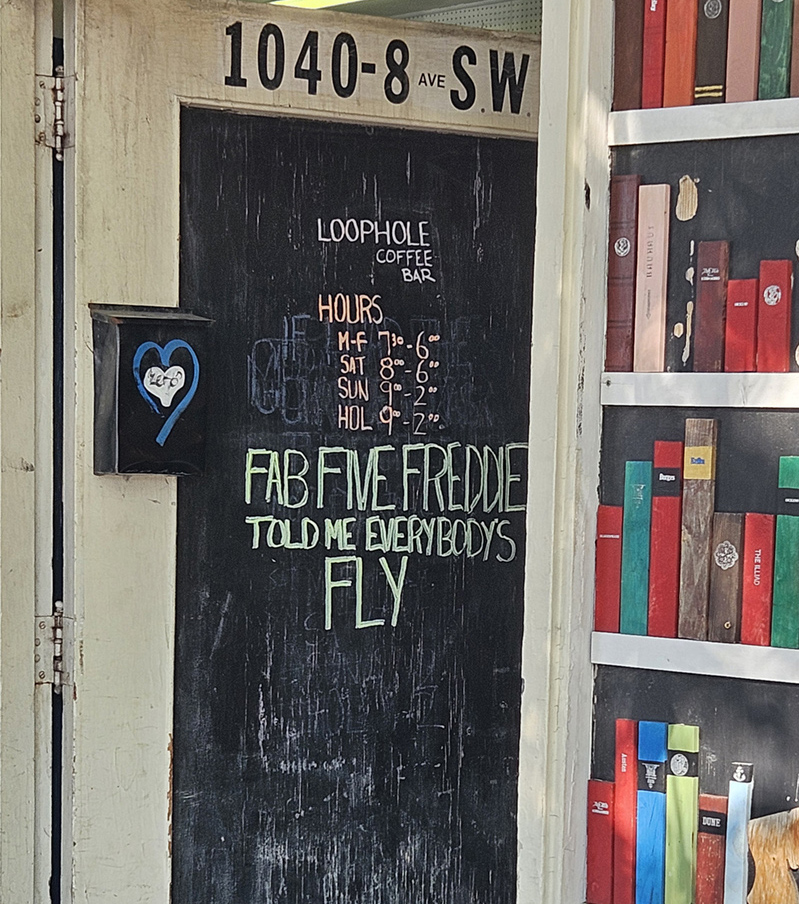 1040-8 AVE S.W.
LOOPHOLE
COFFEE
BAR
HOURS
M-F 7³⁰-6⁰⁰
SAT 8⁰⁰-6⁰⁰
SUN 9⁰⁰-2⁰⁰
HOL 9⁰⁰-2⁰⁰
FAB FIVE FREDDIE
TOLD ME EVERYBODY'S
FLY
zero
BAUHAUS
Borges
THE ILLIAD
Austen
DUNE